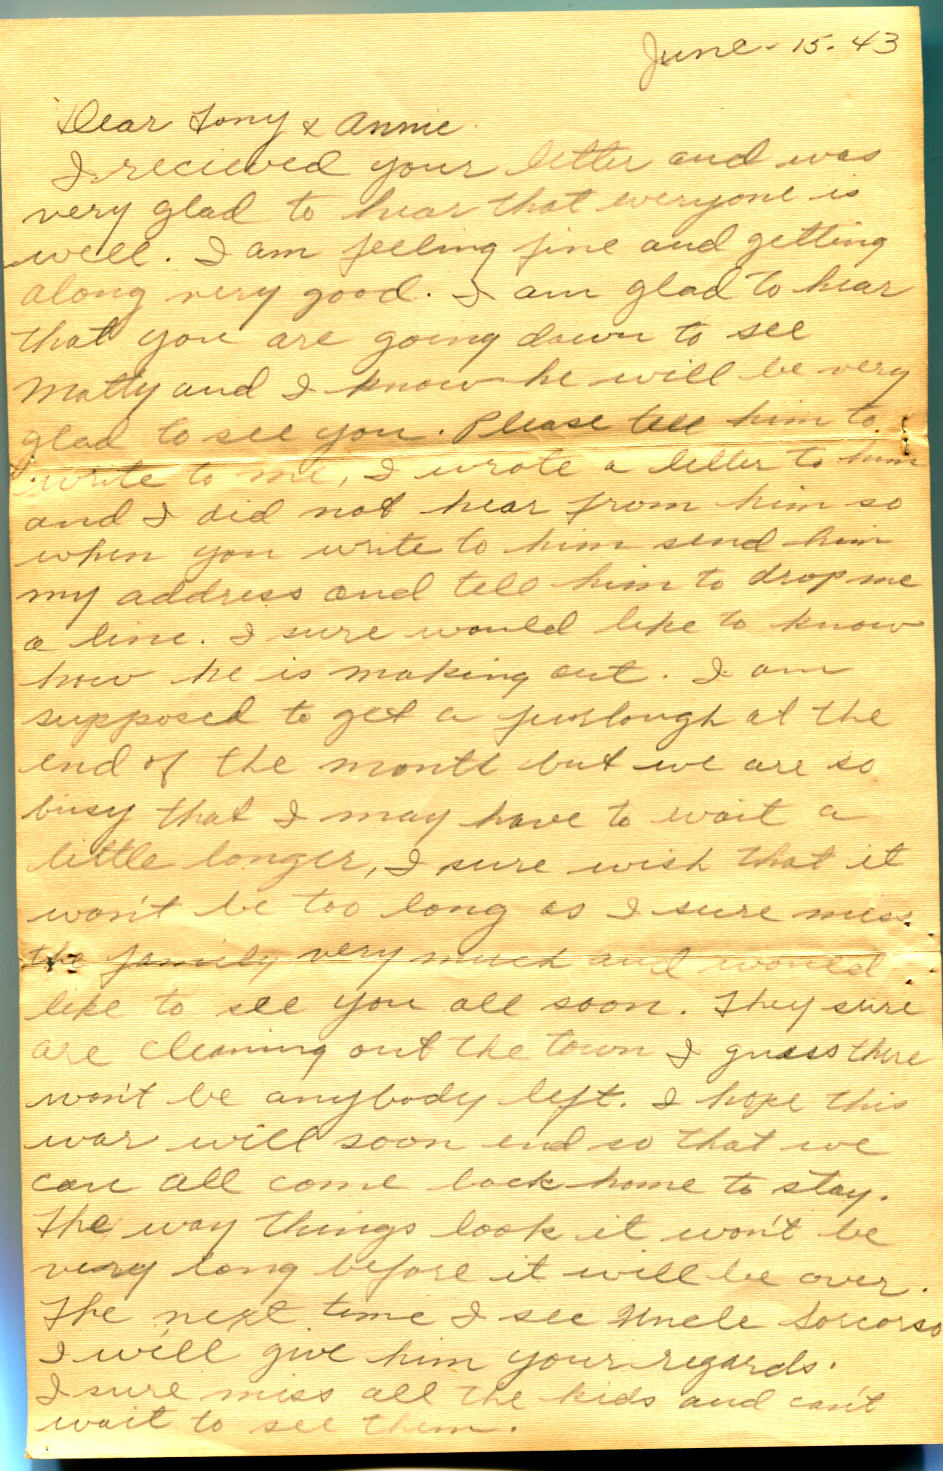 June. 15. 43
Dear Tony & Annie
I recieved your letter and was
very glad to hear that everyone is
well. I am feeling fine and getting
along very good. I am glad to hear
that you are going down to see
Matty and I know he will be very
glad to see you. Please tell him to
write to me, I wrote a letter to him
and I did not hear from him so
when you write to him send him
my address and tell him to drop me
a line. I sure would like to know
how he is making out. I am
supposed to get a furlough at the
end of the month but we are so
busy that I may have to wait a
little longer, I sure wish that it
won't be too long as I sure miss
the family very much and would
like to see you all soon. They sure
are cleaning out the town I guess there
won't be anybody left. I hope this
war will soon end so that we
can all come back home to stay.
The way things look it won't be
very long before it will be over.
The next time I see Uncle
I will give him your regards.
I sure miss all the kids and can't
wait to see them.